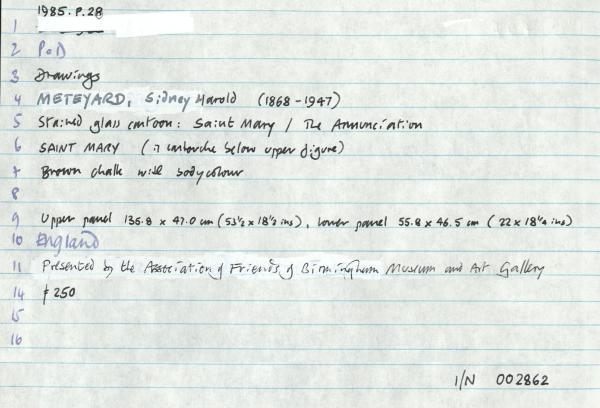 1985.P.28
1
2 P.D
3 Drawings
4 METEYARD, Sidney Harold (1868-1947)
5 Stained glass cartoon: Saint Mary / The Annunciation
6 SAINT MARY (in cartouche below upper figure)
7 Brown chalk with bodycolour
8
9 Upper panel 135.8 x 47.0 cm (53½ x 18½ ins), lower panel 55.8 x 46.5 cm (22 x 18¼ ins)
10 England
11 Presented by the Association of Friends of Birmingham Museum and Art Gallery
14 £250
15
16
I/N 002862